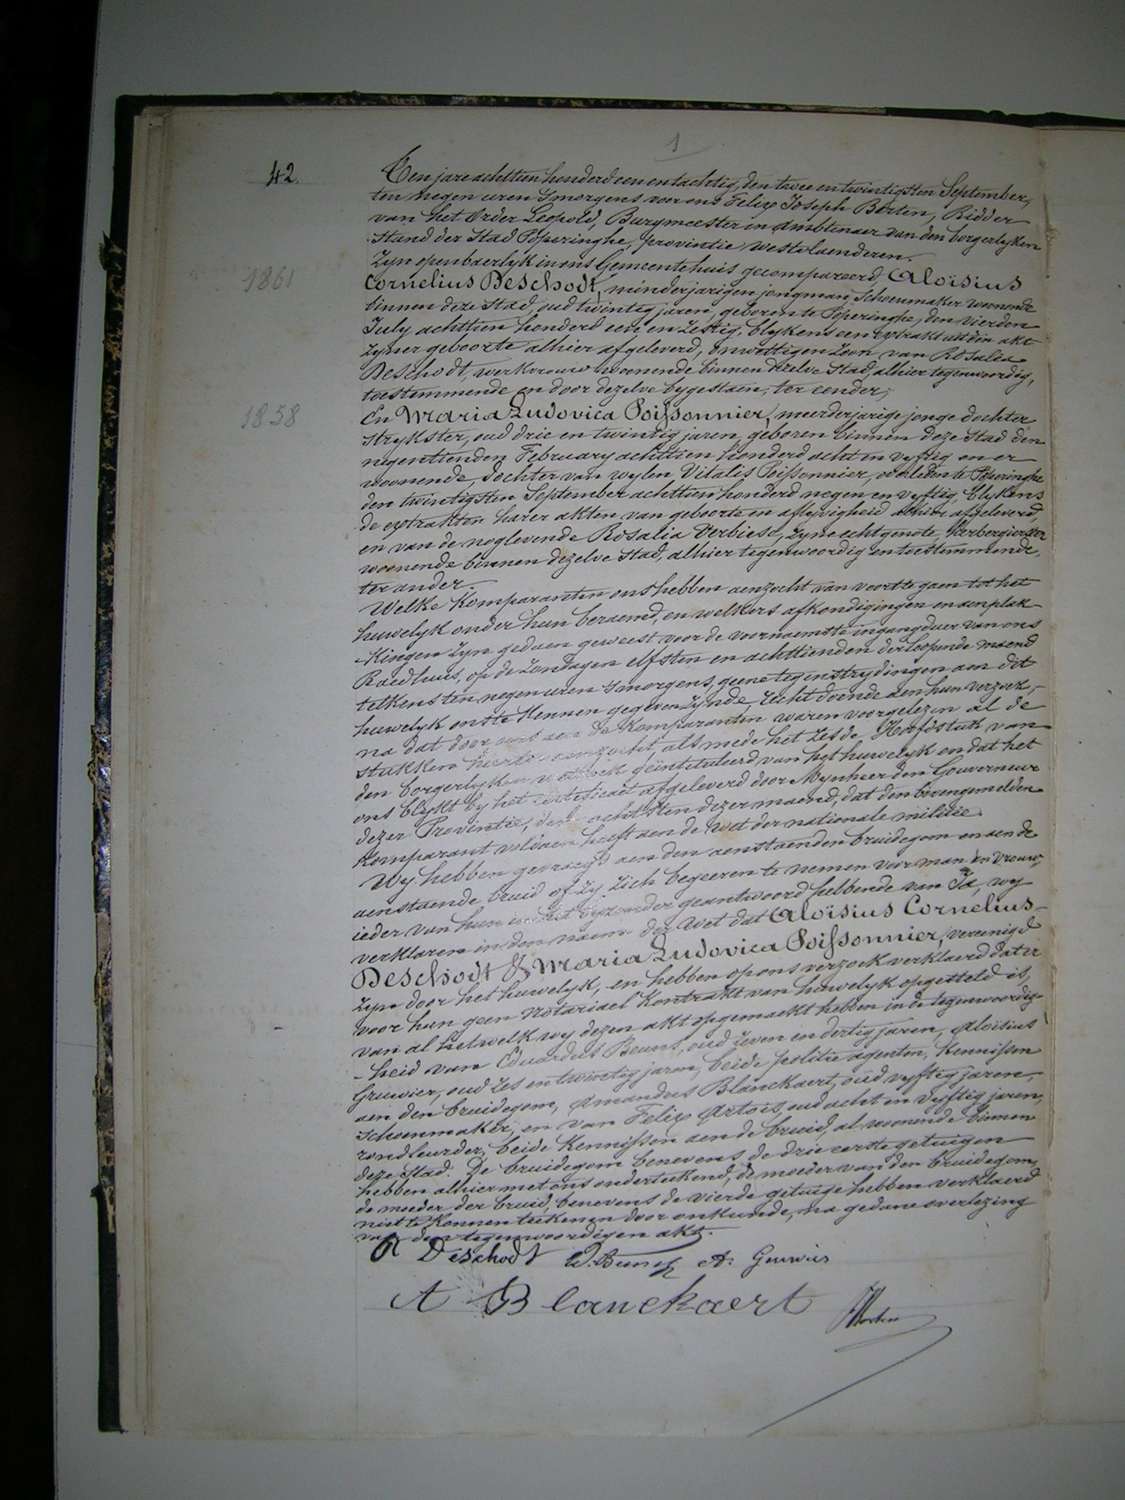 1
42.
Ten jare achttien honderd een en tachtig, den twee en twintigsten September,
ten negen uren 's morgens voor ons Felix Joseph Berten, Ridder
van het Order Leopold, Burgmeester en Ambtenaer van den borgerlyken
Stand der Stad Poperinghe, provintie Westvlaenderen.
Zyn openbaerlyk in ons Gemeentehuis gecompareerd, Aloïsius
1861
Cornelius Deschodt, minderjarigen jongman, Schoenmaker woonende
binnen deze Stad, oud twintig jaren, geboren te Poperinghe, den vierden
July achttien honderd een en zestig, blykens een extrakt uit den akt
zyner geboorte alhier afgeleverd, onwettigen zoon van Rosalia
Deschodt, werkvrouw woonende binnen dezelve Stad, alhier tegenwoordig,
toestemmende en door dezelve bygestaen, ter eender,
1858
En Maria Ludovica Poissonnier, meerderjarige jonge dochter
strykster, oud drie en twintig jaren, geboren binnen deze Stad den
negentienden February achttien honderd acht en vyftig en er
woonende, dochter van wylen Vitalis Poissonnier, overleden te Poperinghe
den twintigsten September achttien honderd negen en vyftig, blykens
de extrakten harer akten van geboorte en aflyvigheid alhier afgeleverd,
en van de noglevende Rosalia Verbiese, zyne echtgenote, herbergierster
woonende binnen dezelve Stad, alhier tegenwoordig en toestemmende,
ter ander.
Welke Komparanten ons hebben aenzocht van voort te gaen tot het
huwelyk onder hun beraemd, en welkers afkondigingen en aenplak-
-kingen zyn gedaen geweest voor de voornaemste ingangdeur van ons
Raedhuis, op de zondagen elfsten en achttienden der loopende maend
telkens ten negen uren 's morgens, geene tegenstrydingen aen dit
huwelyk ons te kennen gegeven zynde, recht doende aen hun verzoek,
na dat door ons aen de Komparanten waren voorgelezen al de
stukken hierto aengehecht, als mede het zesde Hoofdstuk van
den borgerlyken wetboek geïntituleerd van het huwelyk en dat het
ons blykt by het certificaet afgeleverd door Mynheer den Gouverneur
dezer Provintie, den achtsten dezer maend, dat den bovengemelden
Komparant voldaen heeft aen de wet der nationale militie
Wy hebben gevraegd aen den aenstaenden bruidegom en aen de
aenstaende bruid of zy zich begeeren te nemen voor man en vrouw,
ieder van hun in het byzonder geantwoord hebbende van Ja, wy
verklaren in den naem der Wet dat Aloïsius Cornelius
Deschodt & Maria Ludovica Poissonnier, vereenigd
zyn door het huwelyk, en hebben op ons verzoek verklaerd dat er
voor hun geen notariael Kontrakt van huwelyk opgesteld is,
van al hetwelk wy dezen akt opgemaekt hebben in de tegenwoordig-
-heid van Eduardus Beuns, oud zeven en dertig jaren, Aloïsius
Gruwier, oud zes en twintig jaren, beide politie agenten, Kennissen
aen den bruidegom, Amandus Blanckaert, oud vyftig jaren,
schoenmaker, en van Felix Artois, oud acht en vyftig jaren,
rondleurder, beide Kennissen aen de bruid, al woonende binnen
deze Stad. De bruidegom benevens de drie eerste getuigen
hebben alhier met ons onderteekend, de moeder van den bruidegom,
de moeder der bruid, benevens de vierde getuige hebben verklaerd
niet te konnen teekenen door onkunde, na gedane overlezing
van den tegenwoordigen akt.
A Deschodt A. Gruwier
A Blanckaert